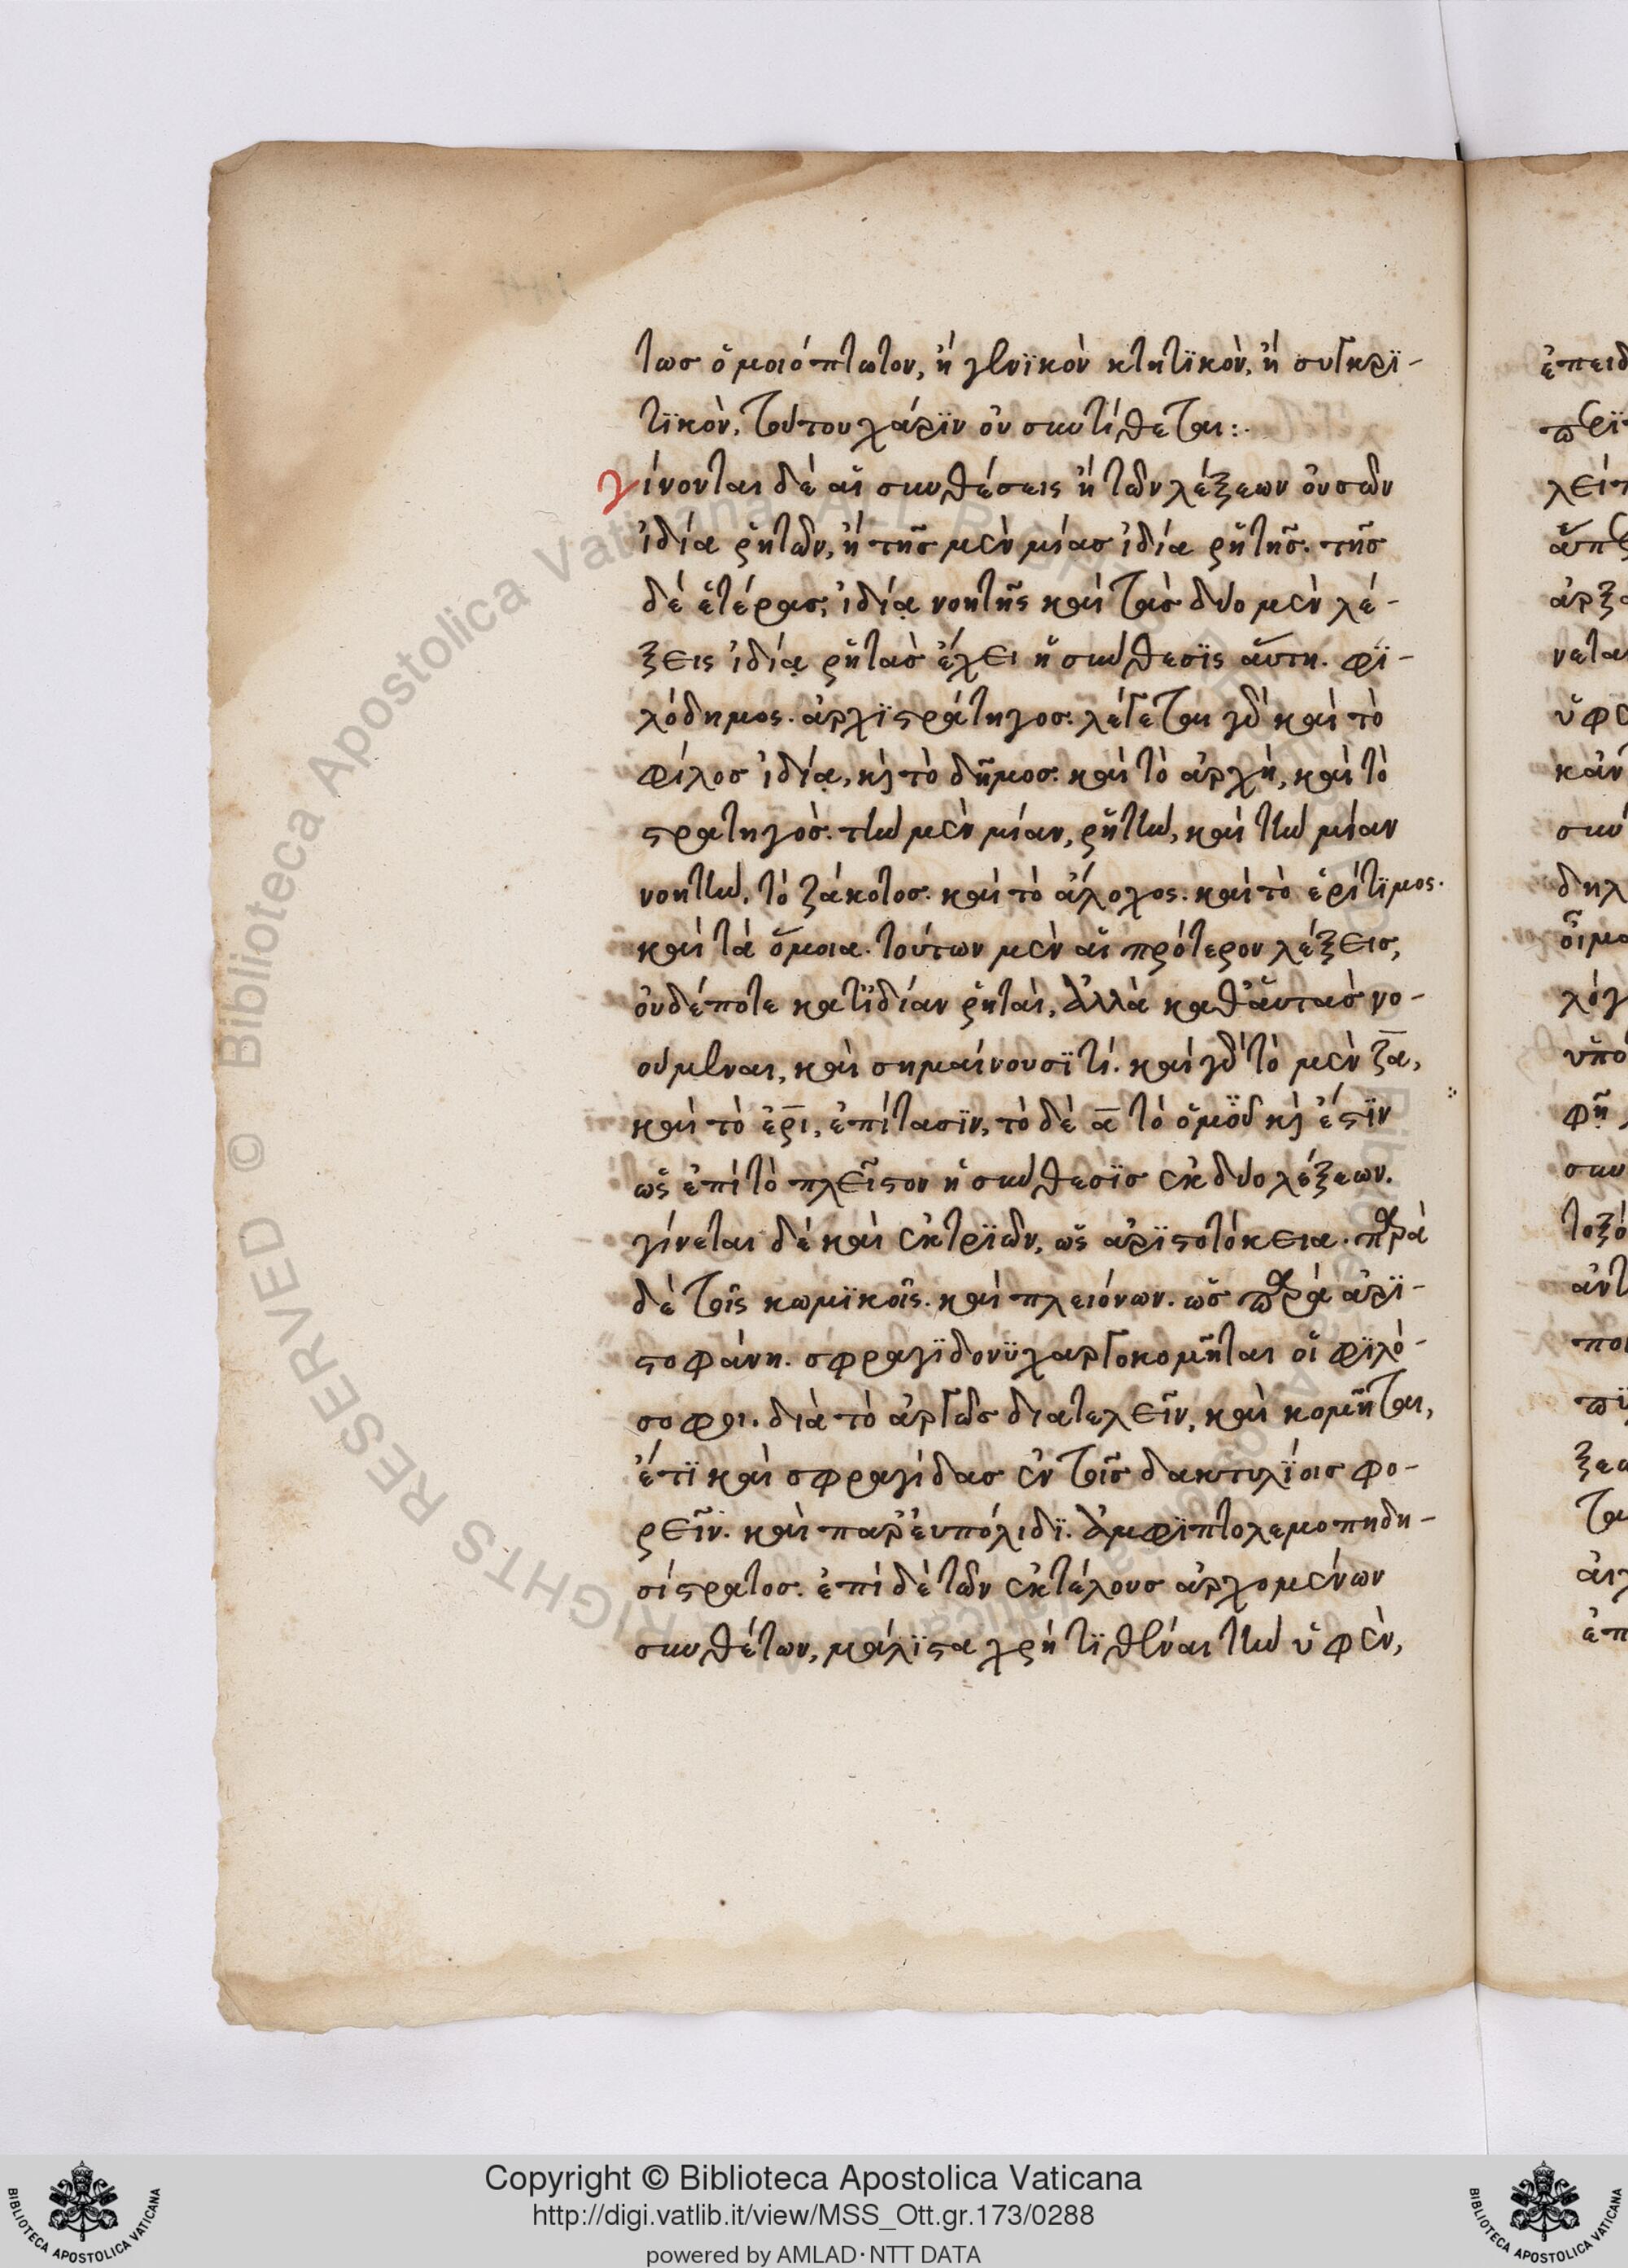 τως ὁμοιόπτωτον, ἢ γενϊκὸν κτητϊκὸν, ἢ συγκρϊ-
τϊκὸν, τούτου χάρϊν οὐ συντίθεται:.
γίνονται δὲ αἱ συνθέσεις ἢ τῶν λέξεων οὐσῶν
ἰδία ῥητῶν, ἢ τῆς μὲν μίας ἰδία ῥητῆς. τῆς
δὲ ἑτέρας, ἰδίᾳ νοητῆς καὶ τὰς δύο μὲν λέ-
ξεις ἰδίᾳ ῥητὰς ἔχει ἡ σύνθεσϊς αὕτη. φϊ-
λόδημος. ἀρχϊστράτηγος. λέγεται γὰρ καὶ τὸ
φίλος ἰδίᾳ, κὶ τὸ δῆμος. καὶ τὸ ἀρχὴ, καὶ τὸ
στρατηγὸς. τὴν μὲν μίαν, ῥητὴν, καὶ τὴν μίαν
νοητὴν, τὸ ζάκοτος. καὶ τὸ ἄλοχος. καὶ τὸ ἐρίτϊμος.
καὶ τὰ ὅμοια. τούτων μὲν αἱ πρότερον λέξεις,
οὐδέποτε κατϊδίαν ῥηταὶ, ἀλλὰ καθ' αὑτὰς νο-
ούμεναι, καὶ σημαίνουσϊ τί. καὶ γὰρ τὸ μὲν ζα,
καὶ τὸ ἐρι, ἐπίτασϊν, τὸ δὲ α τὸ ὁμοῦ κὶ ἔστϊν
ὡς ἐπὶ τὸ πλεῖστον ἡ σύνθεσϊς ἐκ δύο λέξεων.
γίνεται δὲ καὶ ἐκ τρϊῶν, ὡς ἀρϊστοτόκεια. παρὰ
δὲ τοῖς κωμϊκοῖς. καὶ πλειόνων. ὡς παρὰ ἀρϊ-
στοφάνη. σφραγϊδονϋχαργοκομῆται οἱ φϊλό-
σοφοι. διὰ τὸ ἀργῶς διατελεῖν, καὶ κομῆται,
ἔτϊ καὶ σφραγίδας ἐν τοῖς δακτυλΐοις φο-
ρεῖν. καὶ παρ' ἐυπόλιδϊ. ἀμφϊπτολεμοπηδη-
σίστρατος. ἐπὶ δὲ τῶν ἐκ τέλους ἀρχομένων
συνθέτων, μάλϊστα χρὴ τϊθέναι τὴν ὑφὲν,
Copyright © Biblioteca Apostolica Vaticana
http://digi.vatlib.it/view/MSS_Ott.gr.173/0288
powered by AMLAD·NTT DATA